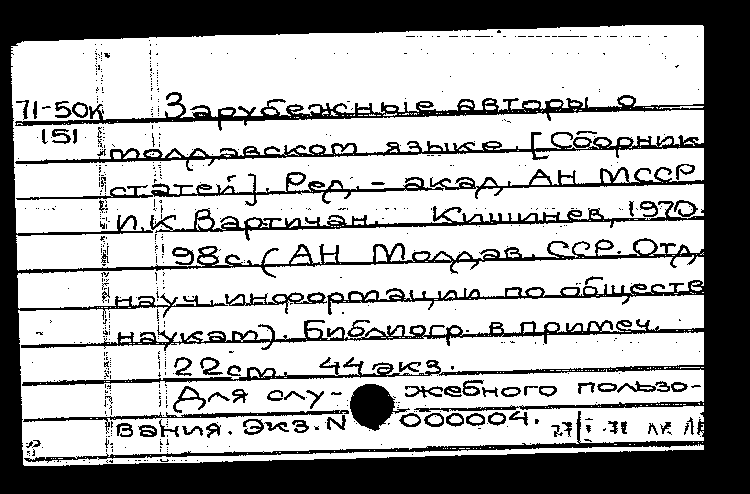 71-50к Зарубежные авторы о
151
молдавском языке. [Сборник
статей]. Ред. - акад. АН МССР
И.К. Вартичан. Кишинев, 1970.
98с. (АН Молдав. ССР. Отд.
науч. информации по обществ
наукам). Библиогр. в примеч.
22см. 44экз.
Для слу- жебного пользо-
вания. Экз. N 000004.